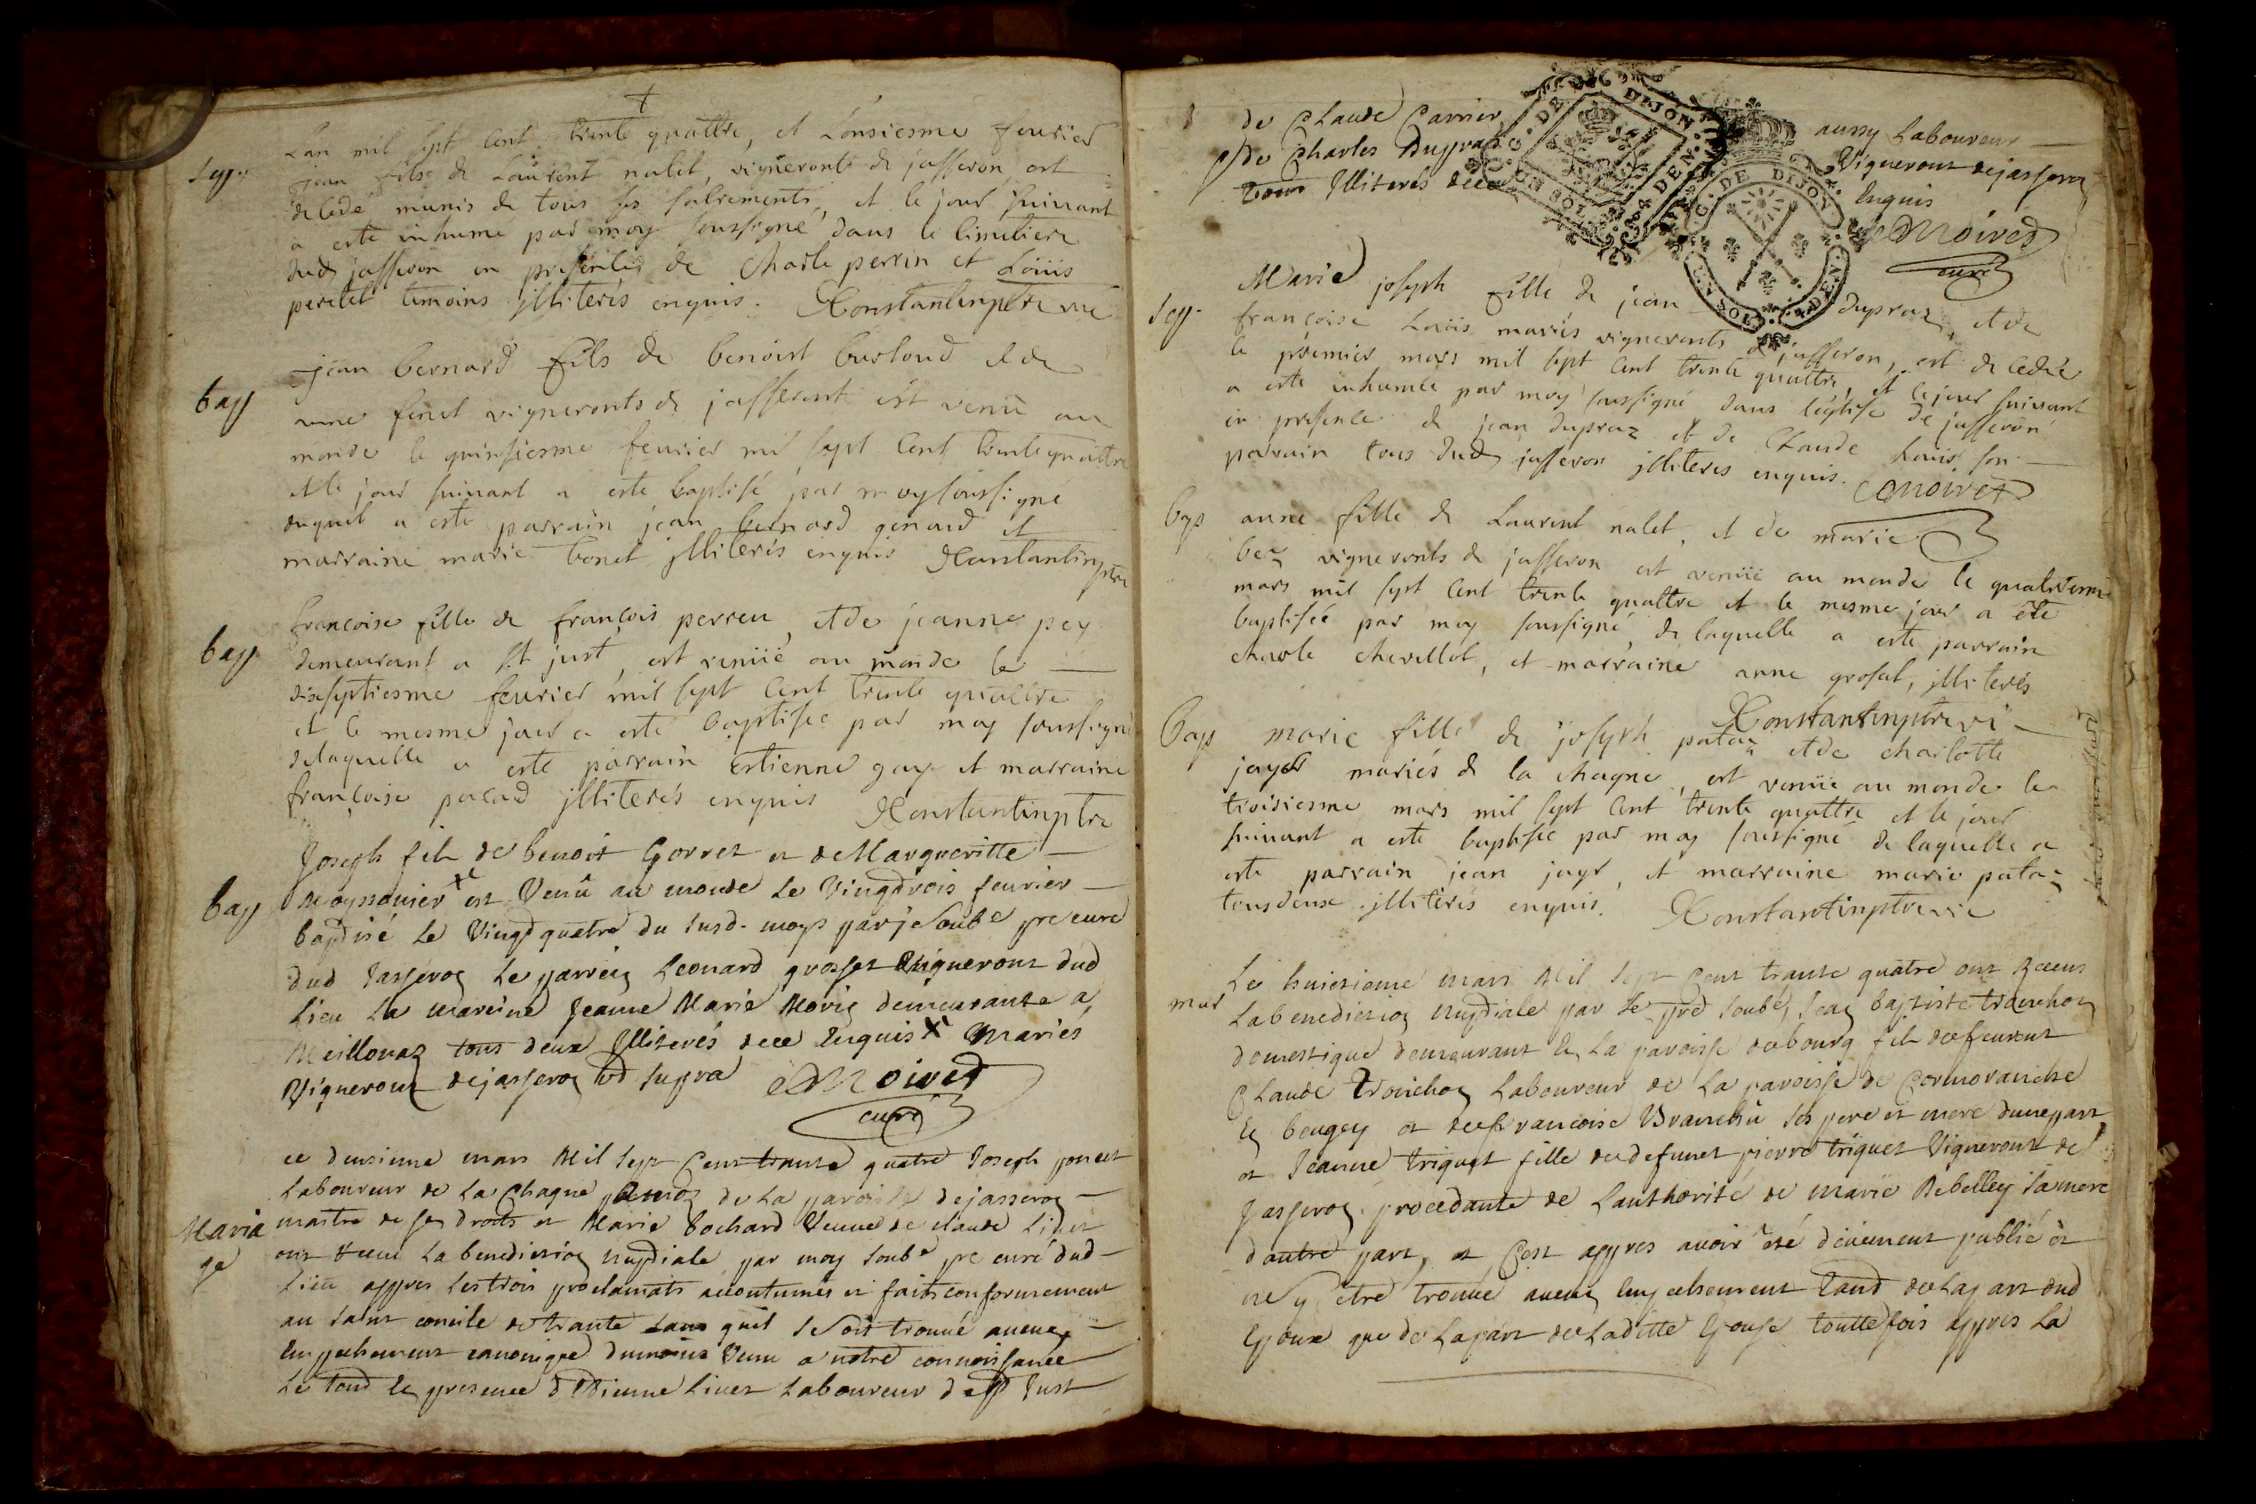 Sep.
Lan mil sept cent trente quattre, et L'onsiesme feurier
jean fils de Laurent nalet, vigneronts de jasseron est
decedé munis de tous ses sacrements, et le jour suivant
a esté inhumé par moy soussigné dans le cimetiere
dud jasseron en presences de Charle perrin et Loüis
peretet temoins illiterés enquis. Constantin ptre vic
bap
jean bernard fils de benoist burtoud et de
anne finet vigneronts de jasseront est venü au
monde le quinsiesme feurier mil sept cent trente quattre
et le jour suivant a esté baptisé par moy soussigné
duquel a esté parrain jean bernard genard et
marraine marie bonet illiterés enquis Constantin ptre
bap
françoise fille de françois perreu, et de jeanne pey
demeurant a St just, est venüe au monde le
disseptiesme feurier mil sept cent trente quattre
et le mesme jour a esté baptisée par moy soussigné
delaquelle a esté parrain estienne gay et marraine
françoise pacard illiterés enquis Constantin ptre
bap
Joseph fils de benoit Gorret et de Margueritte
Moyssonier x est Venû au monde Le Vingtrois feurier
baptisé Le Vingtquatre du susd. moys par je soubé pre curé
dud Jasseron Le parrein Leonard grosset Vigneront dud
Lieu La mareine Jeanne Marie Morin demeurante a
Meillonaz tous deux Illiterés de ce Enquis x Mariés
Vigneront de jasseron ut supra C Moiret
curé
Maria
ge
ce deusieme mars Mil sept Cent trante quatre Joseph poncet
Laboureur de La Chagne de La paroisse de jasseron
maitre de ses droits et Marie bochard Veuue de claude Liuet
ont receu La benediction nuptiale par moy soubé pre curé dud
Lieu appres Les trois proclamats acoutumés et faits conformement
au saint concile de trante sans quil se soit trouué aucun
Empechement canonique dumoins Venu a notre connoissance
Le tout En presence d'Etienne Liuet Laboureur de St Just
de Claude Carrier aussy Laboureur
et de Charles Dupraz Vigneront de jasseron
Tous Illiterés de ce Enquis
C Moiret
curé
G. DE DIJON
Sep.
Marie joseph fille de jean dupraz, et de
françoise Loüis mariés vigneronts de jasseron, est decedée
le premier mars mil sept cent trente quattre, et le jour suivant
a esté inhumée par moy soussigné dans leglise de jasseron
en presence de jean dupraz et de Claude Loüis son
parrain tous dud jasseron illiterés enquis. C Moiret
bap
anne fille de Laurent nalet, et de marie
bez vigneronts de jasseron est venüe au monde le quatriesme
mars mil sept cent trente quattre et le mesme jour a été
baptisée par moy soussigné, de laquelle a esté parrain
charle chevillet, et marraine anne grosset, illiterés
Constantin ptre vi
Bap
marie fille de joseph pataz et de charlotte
jayr mariés de la chagne, est venüe au monde le
troisiesme mars mil sept cent trente quattre et le jour
suivant a esté baptisée par moy soussigné de laquelle a
esté parrain jean jayr, et marraine marie pataz
tous deux illiterés enquis. Constantin ptre vic
mar
Le huictieme mars Mil sept Cent trante quatre ont Receu
La benediction nuptiale par Le pre soubé, Jean baptiste tronchon
domestique demeurant En La paroisse de bourg fils de feu
Claude tronchon Laboureur de La paroisse de Cormoranche
En beugey et de françoise Branchû ses pere et mere dune part
et Jeanne triquet fille de defunct pierre triquet Vigneront de
Jasseron procedante de Lauthorité de marie Rebelley sa mere
dautre part, et Cest appres auoir été düement publié et
ne sy être trouué aucun Empechement Tant de La part dud
Epoux que de La part de Laditte Epouse touttefois appres La